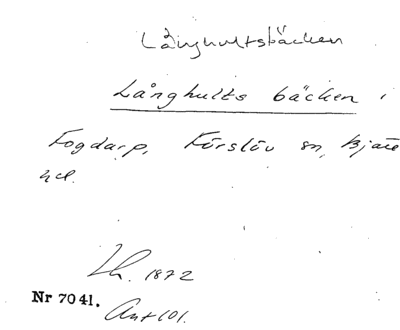 Långhultsbäcken
Långhults bäcken i
Fogdarp, Förslöv sn, Bjäre
hd.
Lh. 1872
Nr 7041.
Ant 101.